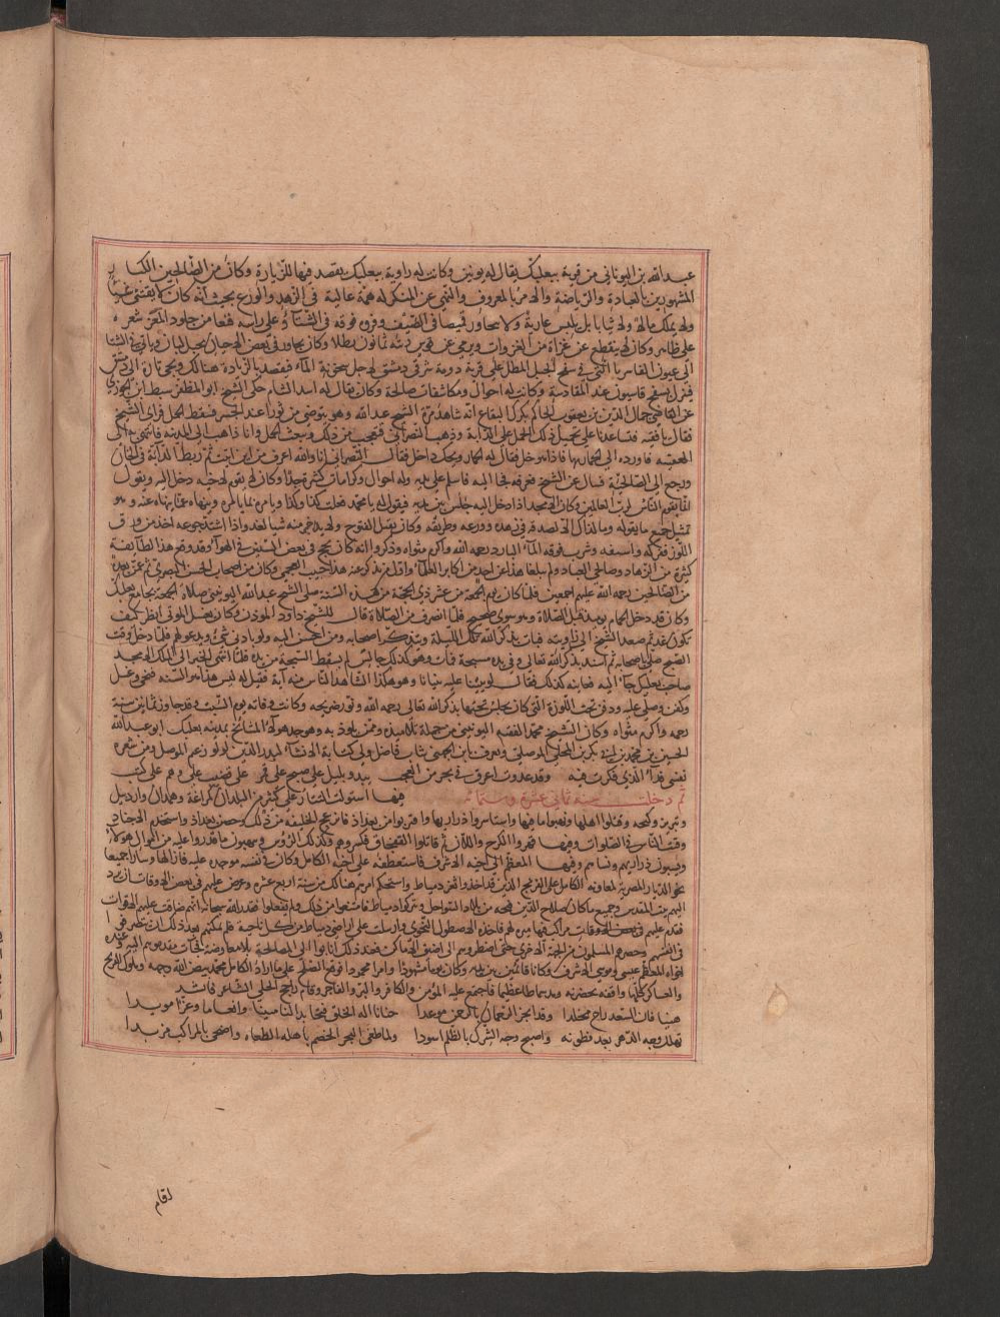 عبد الله بن اليوناني من قرية ببعلبك يقال له يونين وكانت له زاوية ببعلبك يقصد فيها للزيارة وكان من الصالحين الكبار
المشهورين بالعبادة والرياضة والامر بالمعروف والنهي عن المنكر له همة عالية في الزهد والورع بحيث انه كان لا يقتني شيئا
ولا يملك مالا ولا ثيابا بل يلبس عارية ولا يتجاوز قميصا في الصيف وفروة فوقه في الشتاء وعلى راسه قبعا من جلود المعز شعره
على ظاهر وكان لا ينقطع عن غزاة من الغزوات ويرمي عن قوس زنته ثمانون رطلا وكان يجاور في بعض الاحيان بجبل لبنان وياتي في الشتا
الى عيون الفاسريا التي في سفح الجبل المطل على قرية دومة شرقي دمشق لاجل سخونة الماء فيقصد بالزيارة هنالك ويجي تارة الى دمشق
فينزل بسفح قاسيون عند المقادسة وكانت له احوال ومكاشفات صالحة وكان يقال له اسد الشام حكى الشيخ ابو المظفر سبط ابن الجوزي
عن القاضي جمال الدين بن يعقوب الحاكم بكرك البقاع انه شاهد مرة الشيخ عبد الله وهو يتوضى من ثورا عند الجسر
ورجع الى الصالحية فسال عن الشيخ فعرفه فجا اليه فاسلم على يديه وله احوال وكرامات كثيرة جدا وكان لا يقوم لاحد دخل اليه ويقول
انما يقوم الناس لرب العالمين وكان الامجد اذا دخل اليه جلس بين يديه فيقول له يا محمد فعلت كذا وكذا ويامره بما يامره وينهاه عما ينهاه عنه وهو
يمتثل جميع ما يقوله وما ذاك الا لصدقه في زهده وورعه وطريقه وكان يقبل الفتوح ولا يدخر منه شيا لغد واذا اشتد جوعه اخذ من ورق
اللوز ففركه واستفه وشرب فوقه الماء البارد رحمه الله واكرم مثواه وذكروا انه كان يحج في بعض السنين في الهوآ وقد وقع هذا لطائفة
كثيرة من الزهاد وصالحي العباد ولم يبلغنا هذا عن احد من اكابر العلمآ واول من يذكر عنه هذا حبيب العجمي وكان من اصحاب الحسن البصري ثم من بعده
من الصالحين رحمه الله عليهم اجمعين فلما كان يوم الجمعة من عشر ذي الحجة من هذه السنة صلى الشيخ عبد الله اليونيني صلاة الجمعة بجامع بعلبك
وكان قد دخل الحمام يومئذ قبل الصلاة وهو سوي صحيح فلما انصرف من الصلاة قال للشيخ داود المؤذن وكان يغسل الموتى انظر كيف
تكون غدا ثم صعد الشيخ الى زاويته فبات يذكر الله تلك الليلة ويتذكر اصحابه ومن احسن اليه ولو بادنى شي ويدعو لهم فلما دخل وقت
الصبح صلى باصحابه ثم استند يذكر الله تعالى وفي يده سبحة فمات وهو كذلك جالس لم يسقط السبحة من يده فلما انتهى الخبر الى الملك الامجد
صاحب بعلبك جآ اليه فعاينه كذلك فقال لو بنينا عليه بنيانا وهو هكذا لشاهد الناس منه آية فقيل له ليس هذا من السنة فنحي وغسل
وكفن وصلي عليه ودفن تحت اللوزة التي كان يجلس تحتها يذكر الله تعالى رحمه الله ونور ضريحه وكانت وفاته يوم السبت وقد جاوز ثمانين سنة
رحمه واكرم مثواه وكان الشيخ محمد الفقيه اليونيني من جملة تلاميذه وممن يلوذ به وهو جد هولاء المشايخ بمدينة بعلبك ابو عبد الله
الحسين بن محمد بن بكر بن المحلي الموصلي ويعرف بابن الجهني شاب فاضل ولي كتابة الانشاء لبدر الدين لولو زعيم الموصل ومن شعره
نفسي فدآ الذي فكرت فيه وقد غدوت اغرق في بحر من العجب يبدو بليل على صبح على قمر على قضيب على وهم على كثب
ثم دخلت سنة ثماني عشرة وستمائة فيها استولت التتار على كثير من البلدان كمراغة وهمدان واردبيل
وتبريز وكنجه وقتلوا اهلها ونهبوا ما فيها واستاسروا ذراريها واقتربوا من بغداد فانزعج الخليفة من ذلك وحصن بغداد واستخدم الاجناد
وقنت الناس في الصلوات وفيها قهروا الكرج واللان ثم قاتلوا القفجاق فكسروهم وكذلك الروس وينهبون ما قدروا عليه من اموال هولاء
ويسبون ذراريهم ونساهم وفيها المعظم الى اخيه الاشرف فاستعطفه على اخيه الكامل وكان في نفسه موجدة عليه فازالها وسارا جميعا
نحو الديار المصرية لمعاونة الكامل على الفرنج الذين قد اخذوا ثغر دمياط واستحكم امرهم هنالك من سنة اربع عشرة وعرض عليهم في بعض الاوقات ان يرد
اليهم بيت المقدس وجميع ما كان صلاح الدين فتحه من بلاد السواحل ويتركوا دمياط فامتنعوا من ذلك ولم يفعلوا فقدر الله سبحانه انهم ضاقت عليهم الاقوات
فقدم عليهم مراكب فيها ميرة لهم فاخذها الاسطول البحري وارسلت على اراضي دمياط من كل ناحية فلم يمكنهم بعد ذلك ان يتصرفوا
في انفسهم وحصرهم المسلمون من الجهة الاخرى حتى اضطروهم الى اضيق الاماكن فعند ذلك انابوا الى المصالحة بلا معاوضة فجات مقدموهم اليه وعنده
اخواه المعظم عيسى وموسى الاشرف وكانا قائمين بين يديه وكان يوما مشهودا وامرا محمودا فوقع الصلح على ما اراد الكامل محمد بيض الله وجهه وملوك الفرنج
والعساكر كلها واقفة بحضرته ومد سماطا عظيما فاجتمع عليه المؤمن والكافر والبر والفاجر وقام راجح الحلي الشاعر فانشد
هنيا فان السعد راح مخلدا وقد انجز الرحمن بالنصر موعدا حبانا اله الخلق فتحا بدا لنا مبينا وانعاما وعزا مويدا
تهلل وجه الدهر بعد قطوبه واصبح وجه الشرك بالظلم اسودا ولما طغى البحر الخضم باهله الطغاه واضحى بالمراكب مزبدا
اقام